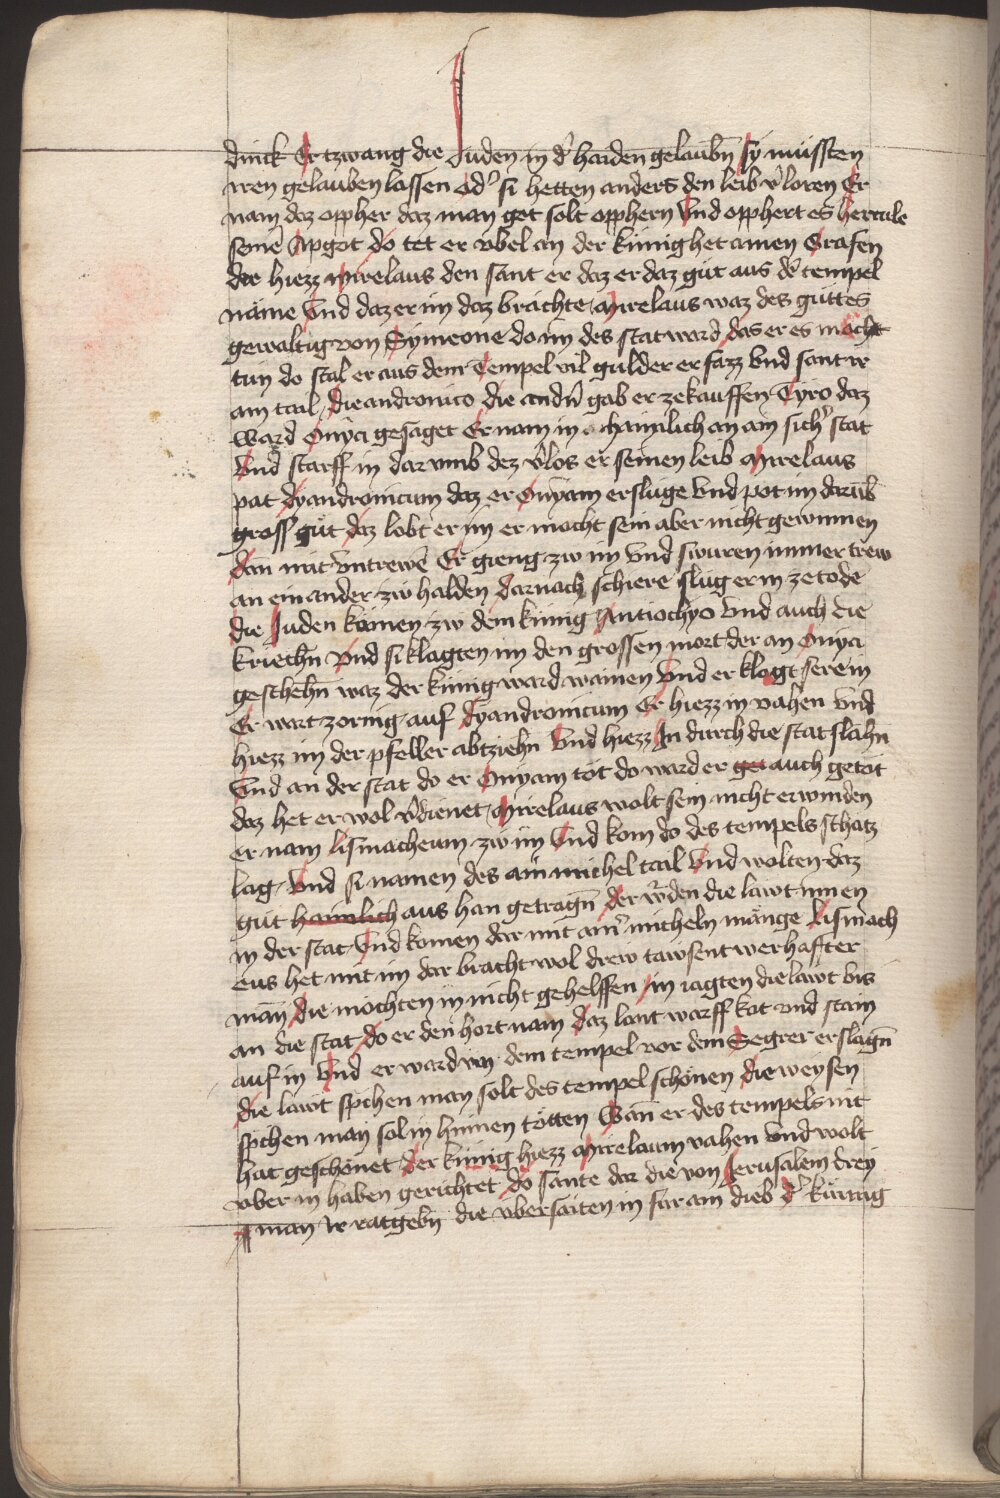 dinck Er tzwang die Juden in d' haiden gelaubn̄ sy muͤssten
iren gelauben lassen od' si hetten anders den leib v'loren Er
nam daz oppher daz man got solt opphern Vnd opphert es hercule
seinē Apgot do tet er vbel an der kuͤnig het ainen Grafen
der hiezz Mirelaus den sant er daz er daz gut aus dē tempel
naͤme Vnd daz er im daz braͤchte Mirelaus waz des guttes
gewaltig von Symeone do im des stat ward das er es mocht
tun do stal er aus dem Tempel vil gulder er fazz vnd sant ir
am tail die andronico die andn̄ gab er ze kauffen Tyro daz
Ward Onya gesaget Er nam in haimlich an ain sich' stat
Vnd starff in dar vmb dez v'los er seinen leib Mirelaus
pat dyandronicum daz er Onyam ersluͤge vnd pot im darūb
gross guͤt daz lobt er im er mocht sein aber nicht gewinnen
dan mit vntrewē Er gieng zw im vnd swuren immer trew
an ein ander zw halden darnach schiere slug er in ze tode
die Juden kamen zw dem kuͤnig Antiochyo vnd auch die
kriechn̄ vnd si klagten im den grossen mort der an Onya
geschehn̄ waz der kuͤnig ward wainen vnd er klogt sere in
Er wart zornig auf dyandronicum Er hiezz in vahen vnd
hiezz im der pfeller abtziehn Vnd hiezz In durch die stat slahn̄
Vnd an der stat do er Onyam tot do ward er get auch getot
daz het er wol v'dienet Mirelaus wolt sein nicht erwinden
er nam lismacheum zw im Vnd kom do des tempels schatz
lag Vnd si namen des ain michel tail Vnd wolten daz
gut haimlich aus han getragn̄ der w'den die lawt innen
in der stat Vnd komen dar mit aim' micheln maͤnge Lismach
eus het mit im dar bracht wol drew tawsent werhaffter
man die mochten in nicht gehelffen in iagten die lawt bis
an die stat do er den hort nam daz lant warff kot vnd stain
auf in Vnd er ward vn dem tempel vor dem Segrer erslagn̄
die lawt sp'chen man solt des tempel schonen die weysen
sp'chen man sol in hinnen toͤtten Wan er des tempels nit
hat geschonet der kuͤnig hiezz Mirelaum vahen vnd wolt
vber in haben gerichtet do sante dar die von Jerusalem drey
man ir ratgebn̄ die vbersaiten in fur ain dieb d'